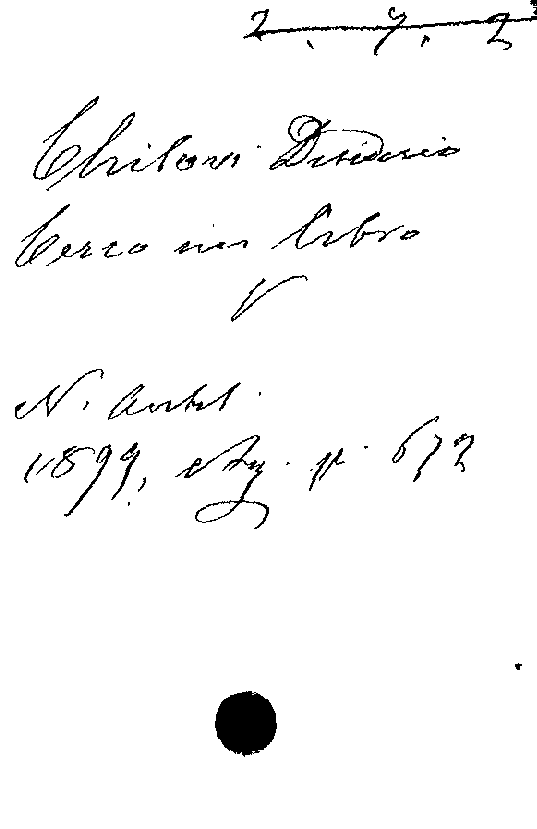 2. 9. 2
Chilovi Desiderio
Cerco un libro
V
N. Antol.
1899, Ag. p. 672